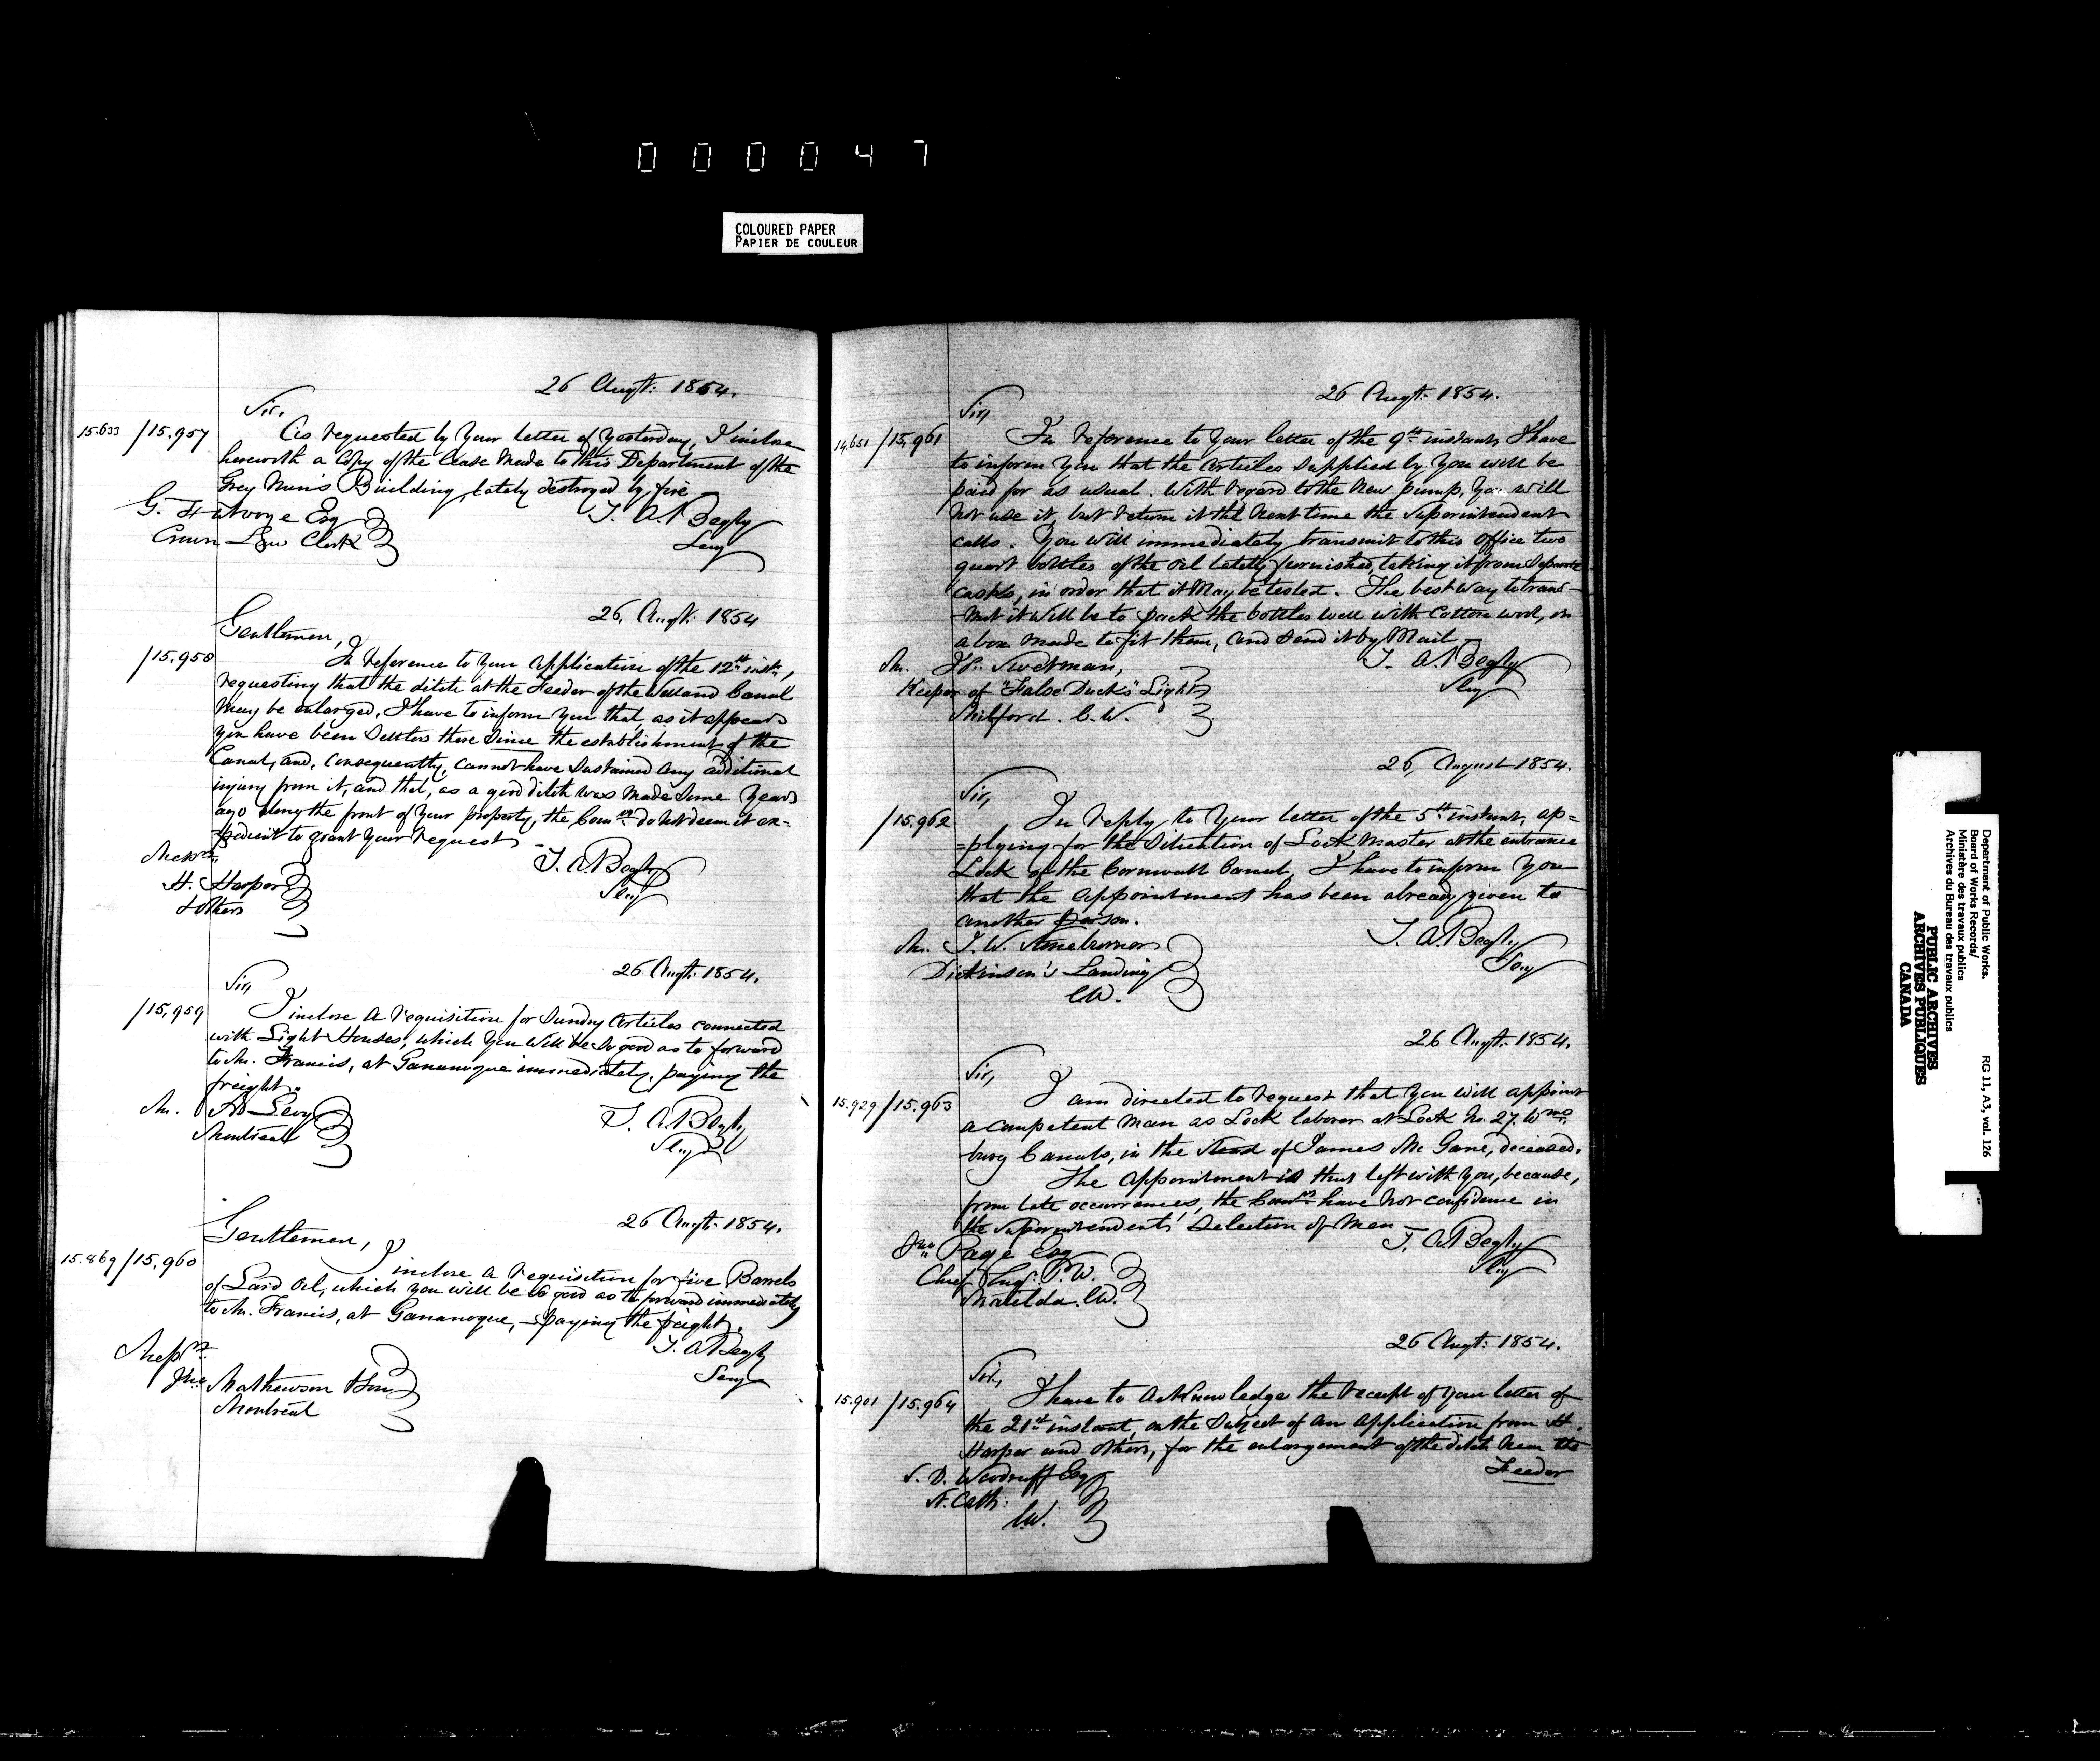 000047
COLOURED PAPER
PAPIER DE COULEUR
26 Augt: 1854.
Sir,
15.633 /15.957
As requested by Your letter of Yesterday, I inclose
herewith a Copy of the Lease Made to this Department of the
Grey Nun's Building, lately destroyed by fire
G. Futvoye Esq
Crown Law Clerk
T. A. Begly
Secy
26, Augt: 1854
Gentlemen,
/15.958
In reference to Your application of the 12th inst:,
requesting that the ditch at the Feeder of the Welland Canal
May be enlarged, I have to inform You that, as it appears
You have been Settlers there Since the establishment of the
Canal, and, consequently, cannot have Sustained any additional
injury from it, and that, as a good ditch was Made Some Years
ago along the front of Your property, the Comrs do not deem it ex=
=pedient to grant Your request
Messrs
H. Harper
& others
T. A. Begly
Secy
26 Augt: 1854.
Sir,
/15,959
I inclose a requisition for Sundry Articles connected
with Light Houses, which You will be So good as to forward
to Mr. Francis, at Gananoque immediately, paying the
freight.
Mr. Levy
Montreal
T. A. Begly
Secy
26 Augt: 1854.
Gentlemen,
15.869 /15,960
I inclose a requisition for five Barrels
of Lard Oil, which You will be So good as to forward immediately
to Mr. Francis, at Gananoque, - paying the freight.
Messrs:
Jno: Mathewson & Son
Montreal
T. A. Begly
Secy
26 Augt: 1854.
Sir,
14,651 /15,961
In reference to Your letter of the 9th instant, I have
to inform You that the Articles Supplied by You will be
paid for as usual. With regard to the New pump, You will
not use it, but return it the Next time the Superintendent
calls. You will immediately transmit to this Office two
quart bottles of the Oil lately furnished, taking it from Separate
casks, in order that it May be tested. The best way to trans-
-mit it will be to pack the bottles well with Cotton wool, in
a box made to fit them, and Send it by Mail
Mr. Swetman,
Keeper of "False Ducks" Light
Milford. C.W.
T. A. Begly
Secy
26, August 1854.
Sir,
/15.962
In reply to Your letter of the 5th instant, ap=
=plying for the Situation of Lock Master at the entrance
Lock of the Cornwall Canal, I have to inform You
that the appointment has been already given to
another person.
Mr. J. W.
Dickinson's Landing
C.W.
T. A. Begly
Secy
26 Augt: 1854.
Sir,
15.929 /15.963
I am directed to request that You will appoint
a competent Man as Lock laborer at Lock No. 27. Wms
burg Canals, in the Stead of James Mc Gane, deceased.
The appointment is thus left with You, because,
from late occurrences, the Comrs have not confidence in
the Superintendents' Selection of Men
Jno Page Esq
Chief Engr. P.W.
Matilda. C.W.
T. A. Begly
Secy
26 Augt: 1854.
Sir,
15.901 /15.964
I have to acknowledge the receipt of Your letter of
the 21st instant, on the Subject of An Application from H.
Harper and others, for the enlargement of the ditch Near the
Feeder
S. D. Woodruff Esq
St. Cath:
C.W.
Department of Public Works.
Board of Works Records/
Ministère des travaux publics
Archives du Bureau des travaux publics
RG 11, A3, vol. 126
PUBLIC ARCHIVES
ARCHIVES PUBLIQUES
CANADA